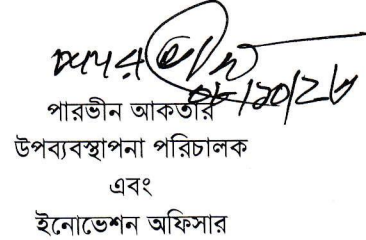 পারভীন আকতার
উপব্যবস্থাপনা পরিচালক
এবং
ইনোভেশন অফিসার